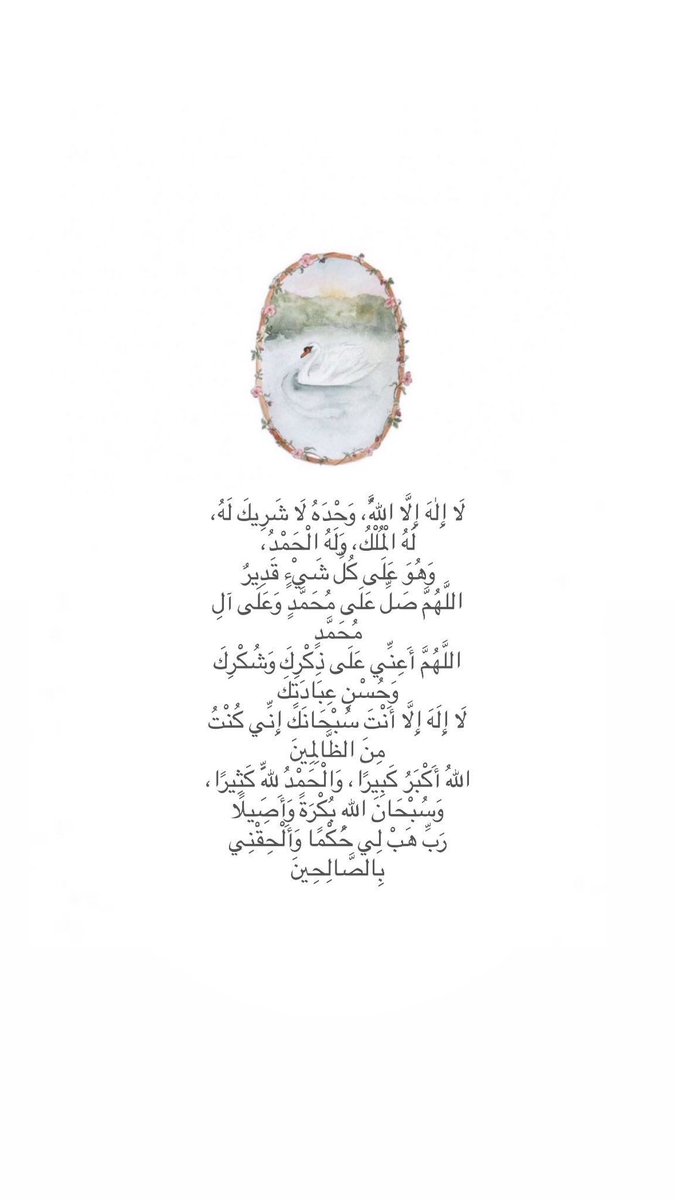 لَا إِلٰهَ إِلَّا اللهُ، وَحْدَهُ لَا شَرِيكَ لَهُ،
لَهُ الْمُلْكُ، وَلَهُ الْحَمْدُ،
وَهُوَ عَلَى كُلِّ شَيْءٍ قَدِيرٌ
اللَّهُمَّ صَلِّ عَلَى مُحَمَّدٍ وَعَلَى آلِ
مُحَمَّدٍ
اللَّهُمَّ أَعِنِّي عَلَى ذِكْرِكَ وَشُكْرِكَ
وَحُسْنِ عِبَادَتِكَ
لَا إِلَهَ إِلَّا أَنْتَ سُبْحَانَكَ إِنِّي كُنْتُ
مِنَ الظَّالِمِينَ
اللهُ أَكْبَرُ كَبِيرًا ، وَالْحَمْدُ لِلهِ كَثِيرًا ،
وَسُبْحَانَ اللهِ بُكْرَةً وَأَصِيلًا
رَبِّ هَبْ لِي حُكْمًا وَأَلْحِقْنِي
بِالصَّالِحِينَ